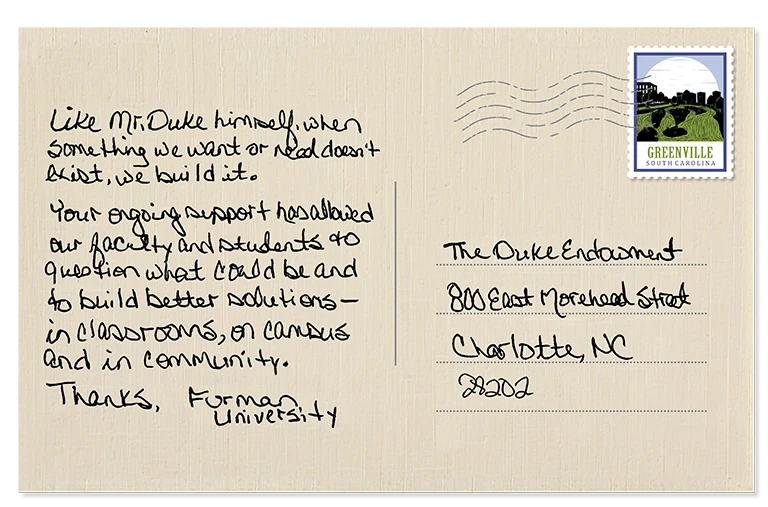 Like Mr. Duke himself, when
something we want or need doesn't
exist, we build it.
Your ongoing support has allowed
our faculty and students to
question what could be and
to build better solutions—
in classrooms, on campus
and in community.
Thanks, Furman
University
GREENVILLE
SOUTH CAROLINA
The Duke Endowment
800 East Morehead Street
Charlotte, NC
28202